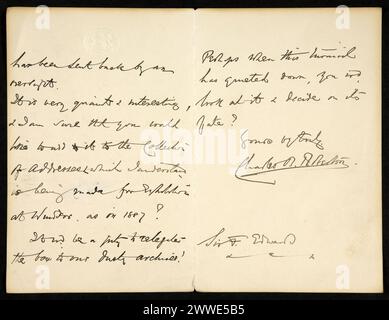 has been sent back by an
oversight.
It is very quaint & interesting,
& I am sure tht you would
like to add it to the Collection
of Addresses, which I understand
is being made for Exhibition
at Windsor, as on 1887?
It wd. be a pity to relegate
the box to our dusty archives!
Perhaps when this turmoil
has quieted down, you wd.
look at it & decide on its
fate?
Yours vy truly
Charles
Sir F Edwards
alamy
Image ID: 2WWE5B5
www.alamy.com